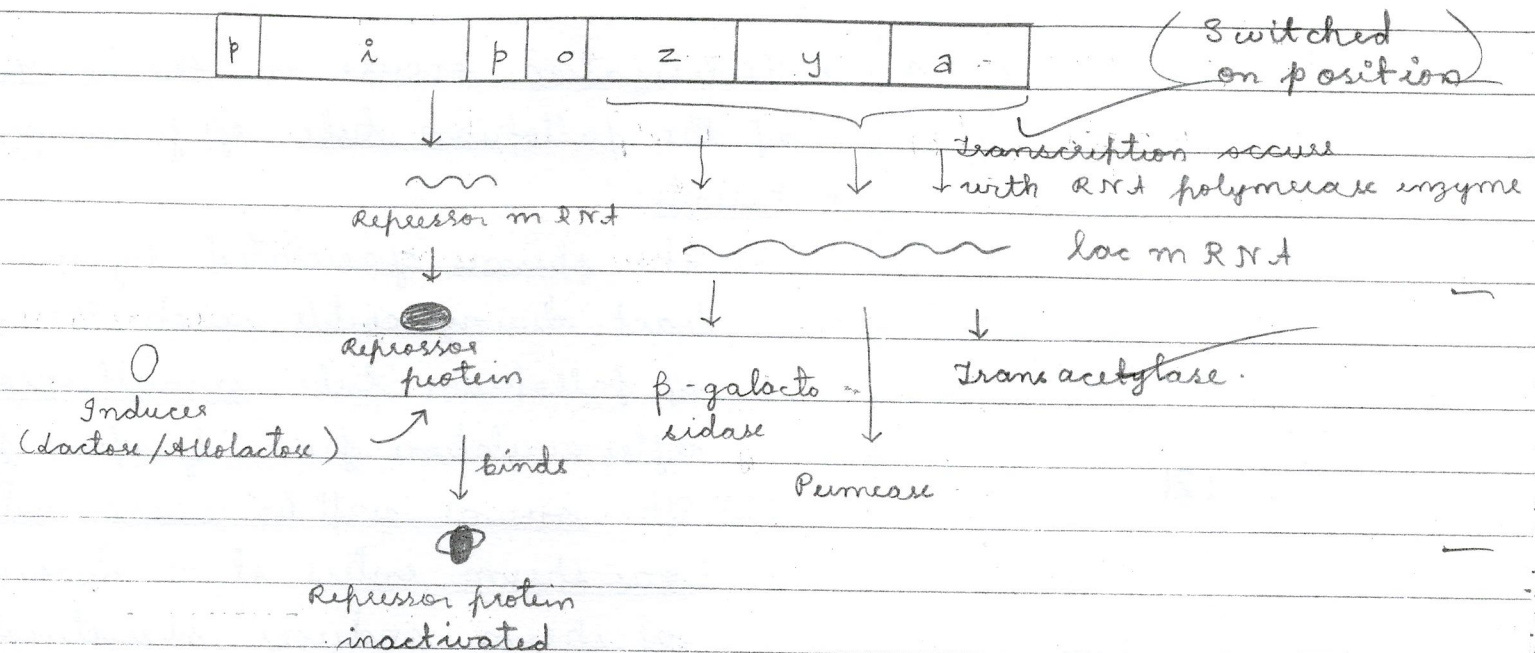 p i p o z y a
(Switched
on position)
Transcription occurs
with RNA polymerase enzyme
Repressor mRNA
lac mRNA
Repressor
protein
Inducer
(Lactose/Allolactose)
binds
β-galacto-
sidase
Permease
Transacetylase.
Repressor protein
inactivated